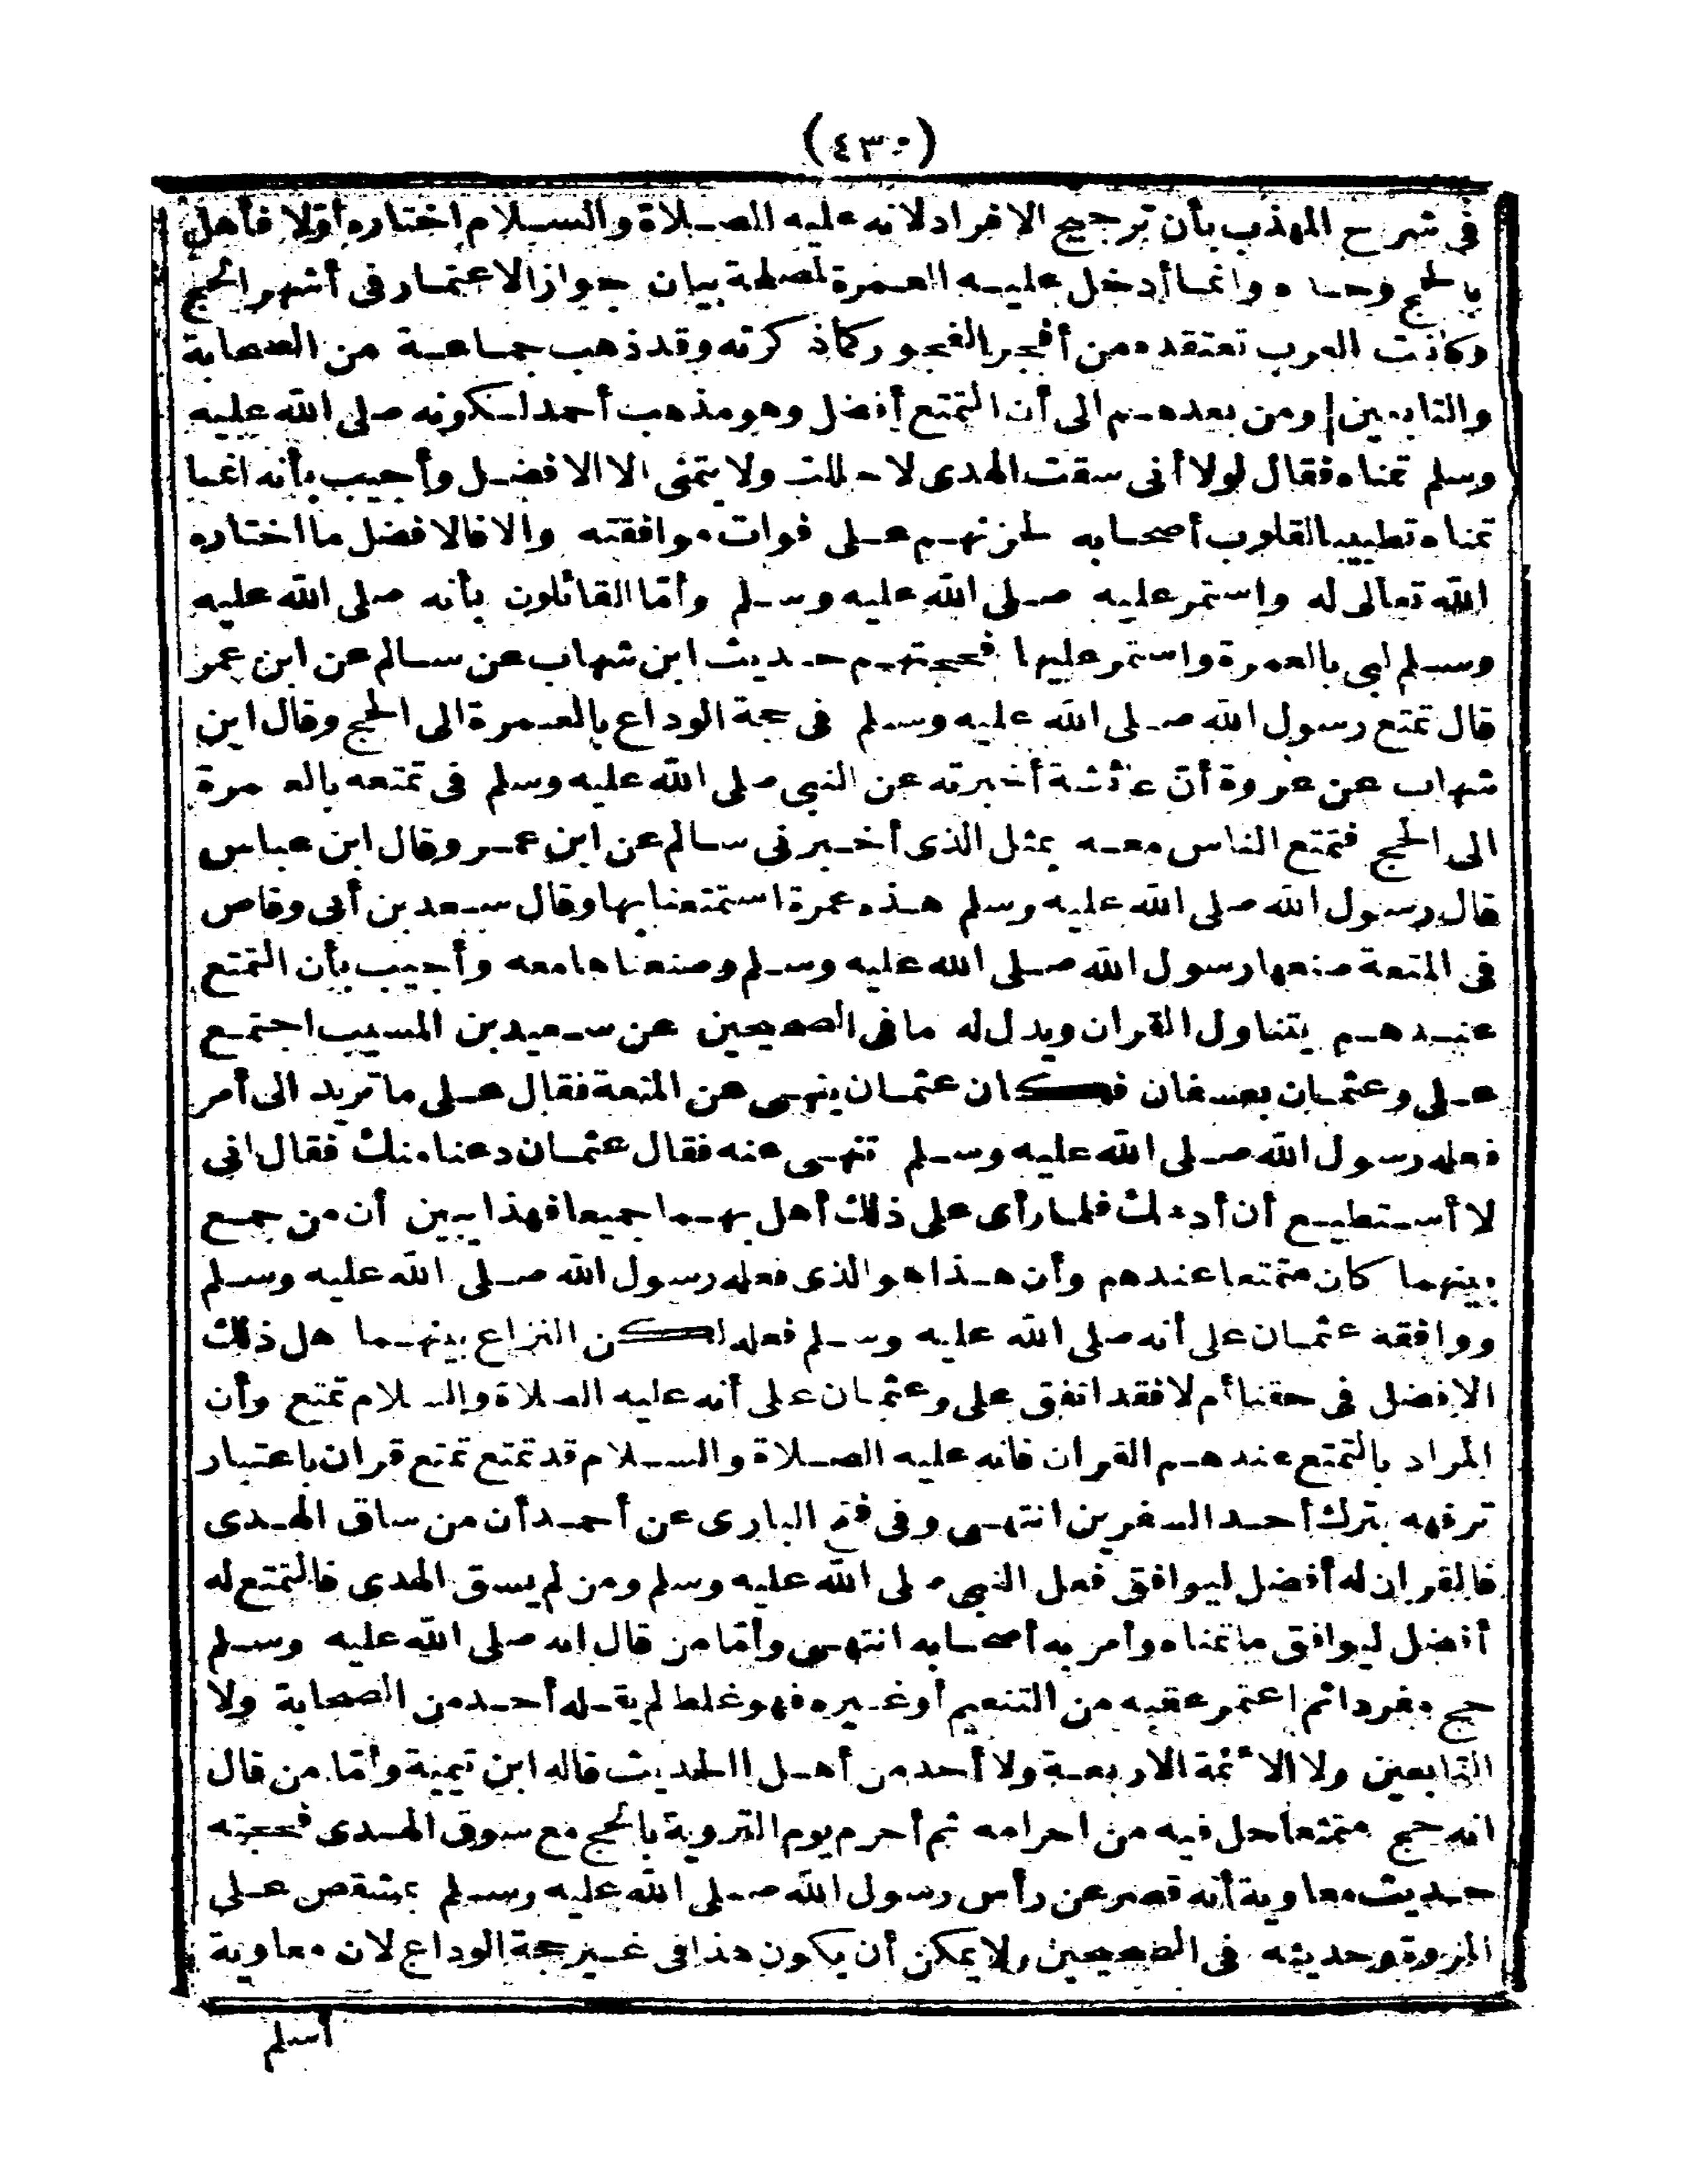 (٤٣٠)
فى شرح المهذب بأن ترجيح الافراد لانه عليه الصلاة والسلام اختاره أولا فأهل
بالحج وحده وانما أدخل عليه العمرة لمصلحة بيان جواز الاعتمار فى أشهر الحج
وكانت العرب تعتقده من أفجر الفجور كما ذكرته وقد ذهب جماعة من الصحابة
والتابعين ومن بعدهم الى أن التمتع أفضل وهو مذهب أحمد لكونه صلى الله عليه
وسلم تمناه فقال لولا أنى سقت الهدى لاحللت ولا يتمنى الا الافضل وأجيب بأنه انما
تمناه تطييبا لقلوب أصحابه لحزنهم على فوات موافقته والا فالافضل ما اختاره
الله تعالى له واستمر عليه صلى الله عليه وسلم وأما القائلون بأنه صلى الله عليه
وسلم لبى بالعمرة واستمر عليها فحجتهم حديث ابن شهاب عن سالم عن ابن عمر
قال تمتع رسول الله صلى الله عليه وسلم فى حجة الوداع بالعمرة الى الحج وقال ابن
شهاب عن عروة أن عائشة أخبرته عن النبى صلى الله عليه وسلم فى تمتعه بالعمرة
الى الحج فتمتع الناس معه بمثل الذى أخبرنى سالم عن ابن عمر وقال ابن عباس
قال رسول الله صلى الله عليه وسلم هذه عمرة استمتعنا بها وقال سعد بن أبى وقاص
فى المتعة صنعها رسول الله صلى الله عليه وسلم وصنعناها معه وأجيب بأن التمتع
عندهم يتناول القران ويدل له ما فى الصحيحين عن سعيد بن المسيب اجتمع
على وعثمان بعسفان فكان عثمان ينهى عن المتعة فقال على ما تريد الى أمر
فعله رسول الله صلى الله عليه وسلم تنهى عنه فقال عثمان دعنا منك فقال انى
لا أستطيع أن أدعك فلما رأى على ذلك أهل بهما جميعا فهذا يبين أن من جمع
بينهما كان متمتعا عندهم وأن هذا هو الذى فعله رسول الله صلى الله عليه وسلم
ووافقه عثمان على أنه صلى الله عليه وسلم فعله لكن النزاع بينهما هل ذلك
الافضل فى حقنا أم لا فقد اتفق على وعثمان على أنه عليه الصلاة والسلام تمتع وأن
المراد بالتمتع عندهم القران فانه عليه الصلاة والسلام قد تمتع تمتع قران باعتبار
ترفهه بترك أحد السفرين انتهى وفى فتح البارى عن أحمد أن من ساق الهدى
فالقران له أفضل ليوافق فعل النبى صلى الله عليه وسلم ومن لم يسق الهدى فالتمتع له
أفضل ليوافق ما تمناه وأمر به أصحابه انتهى وأما من قال انه صلى الله عليه وسلم
حج مفردا ثم اعتمر عقبه من التنعيم أو غيره فهو غلط لم يقله أحد من الصحابة ولا
التابعين ولا الائمة الاربعة ولا أحد من أهل الحديث قاله ابن تيمية وأما من قال
انه حج متمتعا حل فيه من احرامه ثم أحرم يوم التروية بالحج مع سوق الهدى فحجته
حديث معاوية أنه قصر عن رأس رسول الله صلى الله عليه وسلم بمشقص على
المروة وحديثه فى الصحيحين ولا يمكن أن يكون هذا فى غير حجة الوداع لان معاوية
أسلم